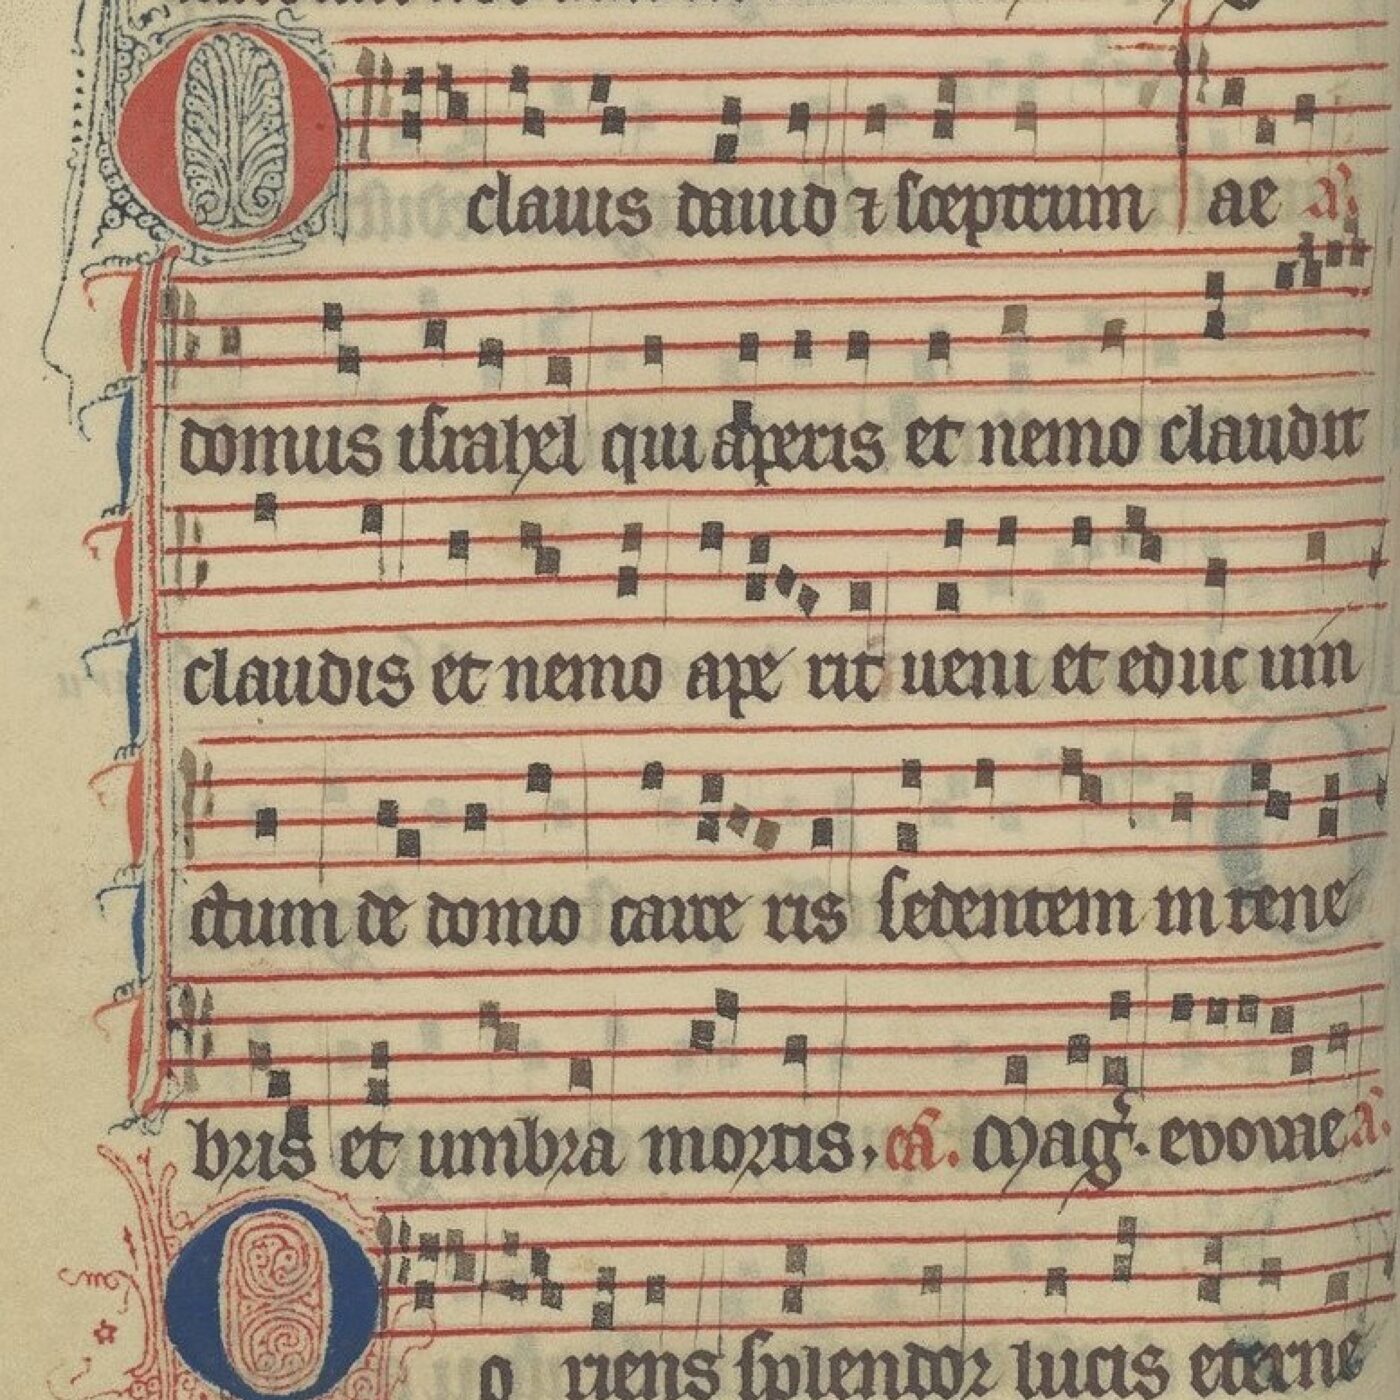 O clauis dauid ⁊ sceptrum ae a͛.
domus israhel qui aperis et nemo claudit
claudis et nemo ape rit ueni et educ uin
ctum de domo carce ris sedentem in tene
bris et umbra mortis. Mag͛. evovae a͛.
O o riens splendor lucis eterne